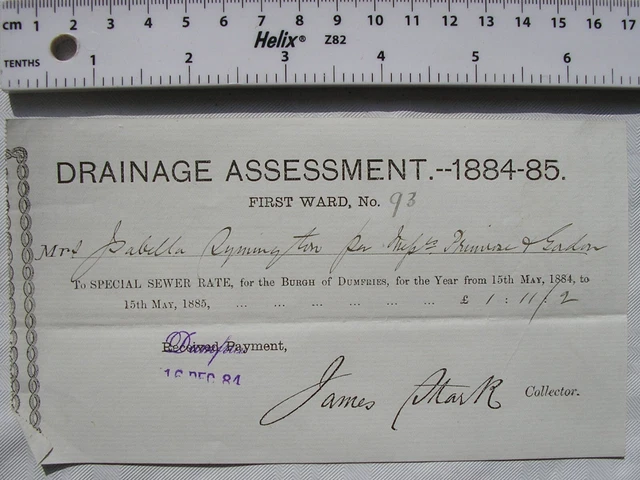 cm 1 2 3 4 5 6 7 8 9 10 11 12 13 14 15 16 17
Helix® Z82
TENTHS 1 2 3 4 5 6
DRAINAGE ASSESSMENT.--1884-85.
FIRST WARD, No. 93
Mrs Isabella Rymington per Messrs Primrose & Gordon
To SPECIAL SEWER RATE, for the BURGH OF DUMFRIES, for the Year from 15th MAY, 1884, to
15th MAY, 1885, ... ... ... ... ... ... £ 1 : 11/2
Received Payment,
16 DEC 84
James Stark Collector.